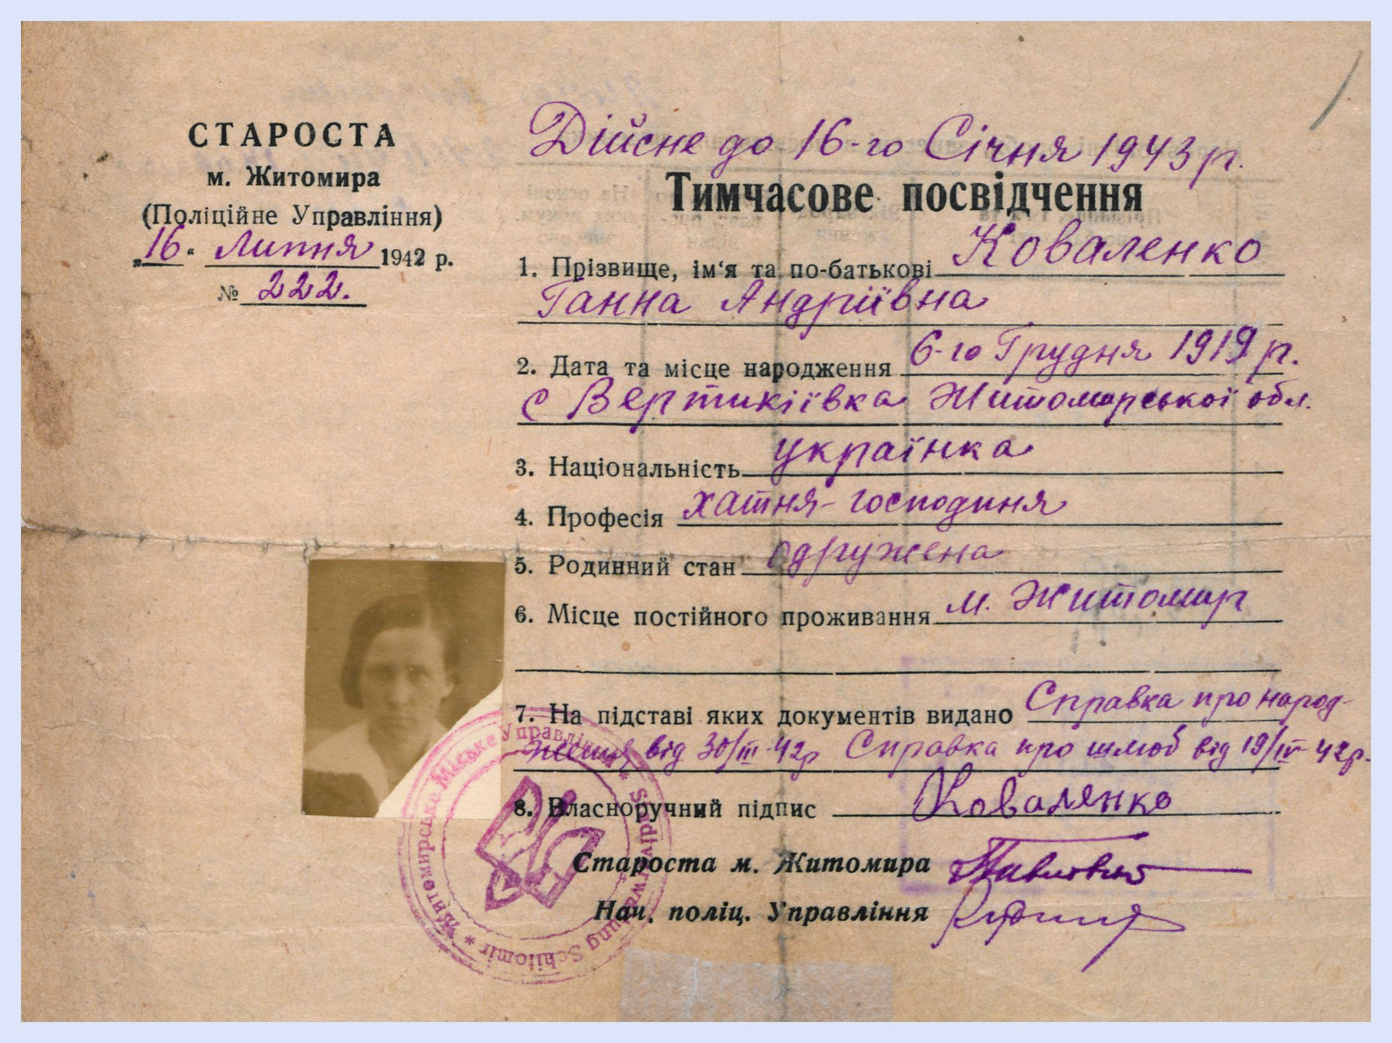 СТАРОСТА
м. Житомира
(Поліційне Управління)
„16“ Липня 1942 р.
№ 222.
Дійсне до 16-го Січня 1943 р.
Тимчасове посвідчення
1. Прізвище, ім‘я та по-батькові Коваленко
Ганна Андріївна
2. Дата та місце народження 6-го Грудня 1919 р.
с Вертикіївка Житомирської обл.
3. Національність українка
4. Професія хатня-господиня
5. Родинний стан одружена
6. Місце постійного проживання м. Житомир
7. На підставі яких документів видано Справка про народ-
ження від 30/III-42р Справка про шлюб від 19/III-42р.
8. Власноручний підпис Коваленко
Староста м. Житомира
Нач. поліц. Управління
Житомирське Міське Управління * Stadtverwaltung Schitomir *